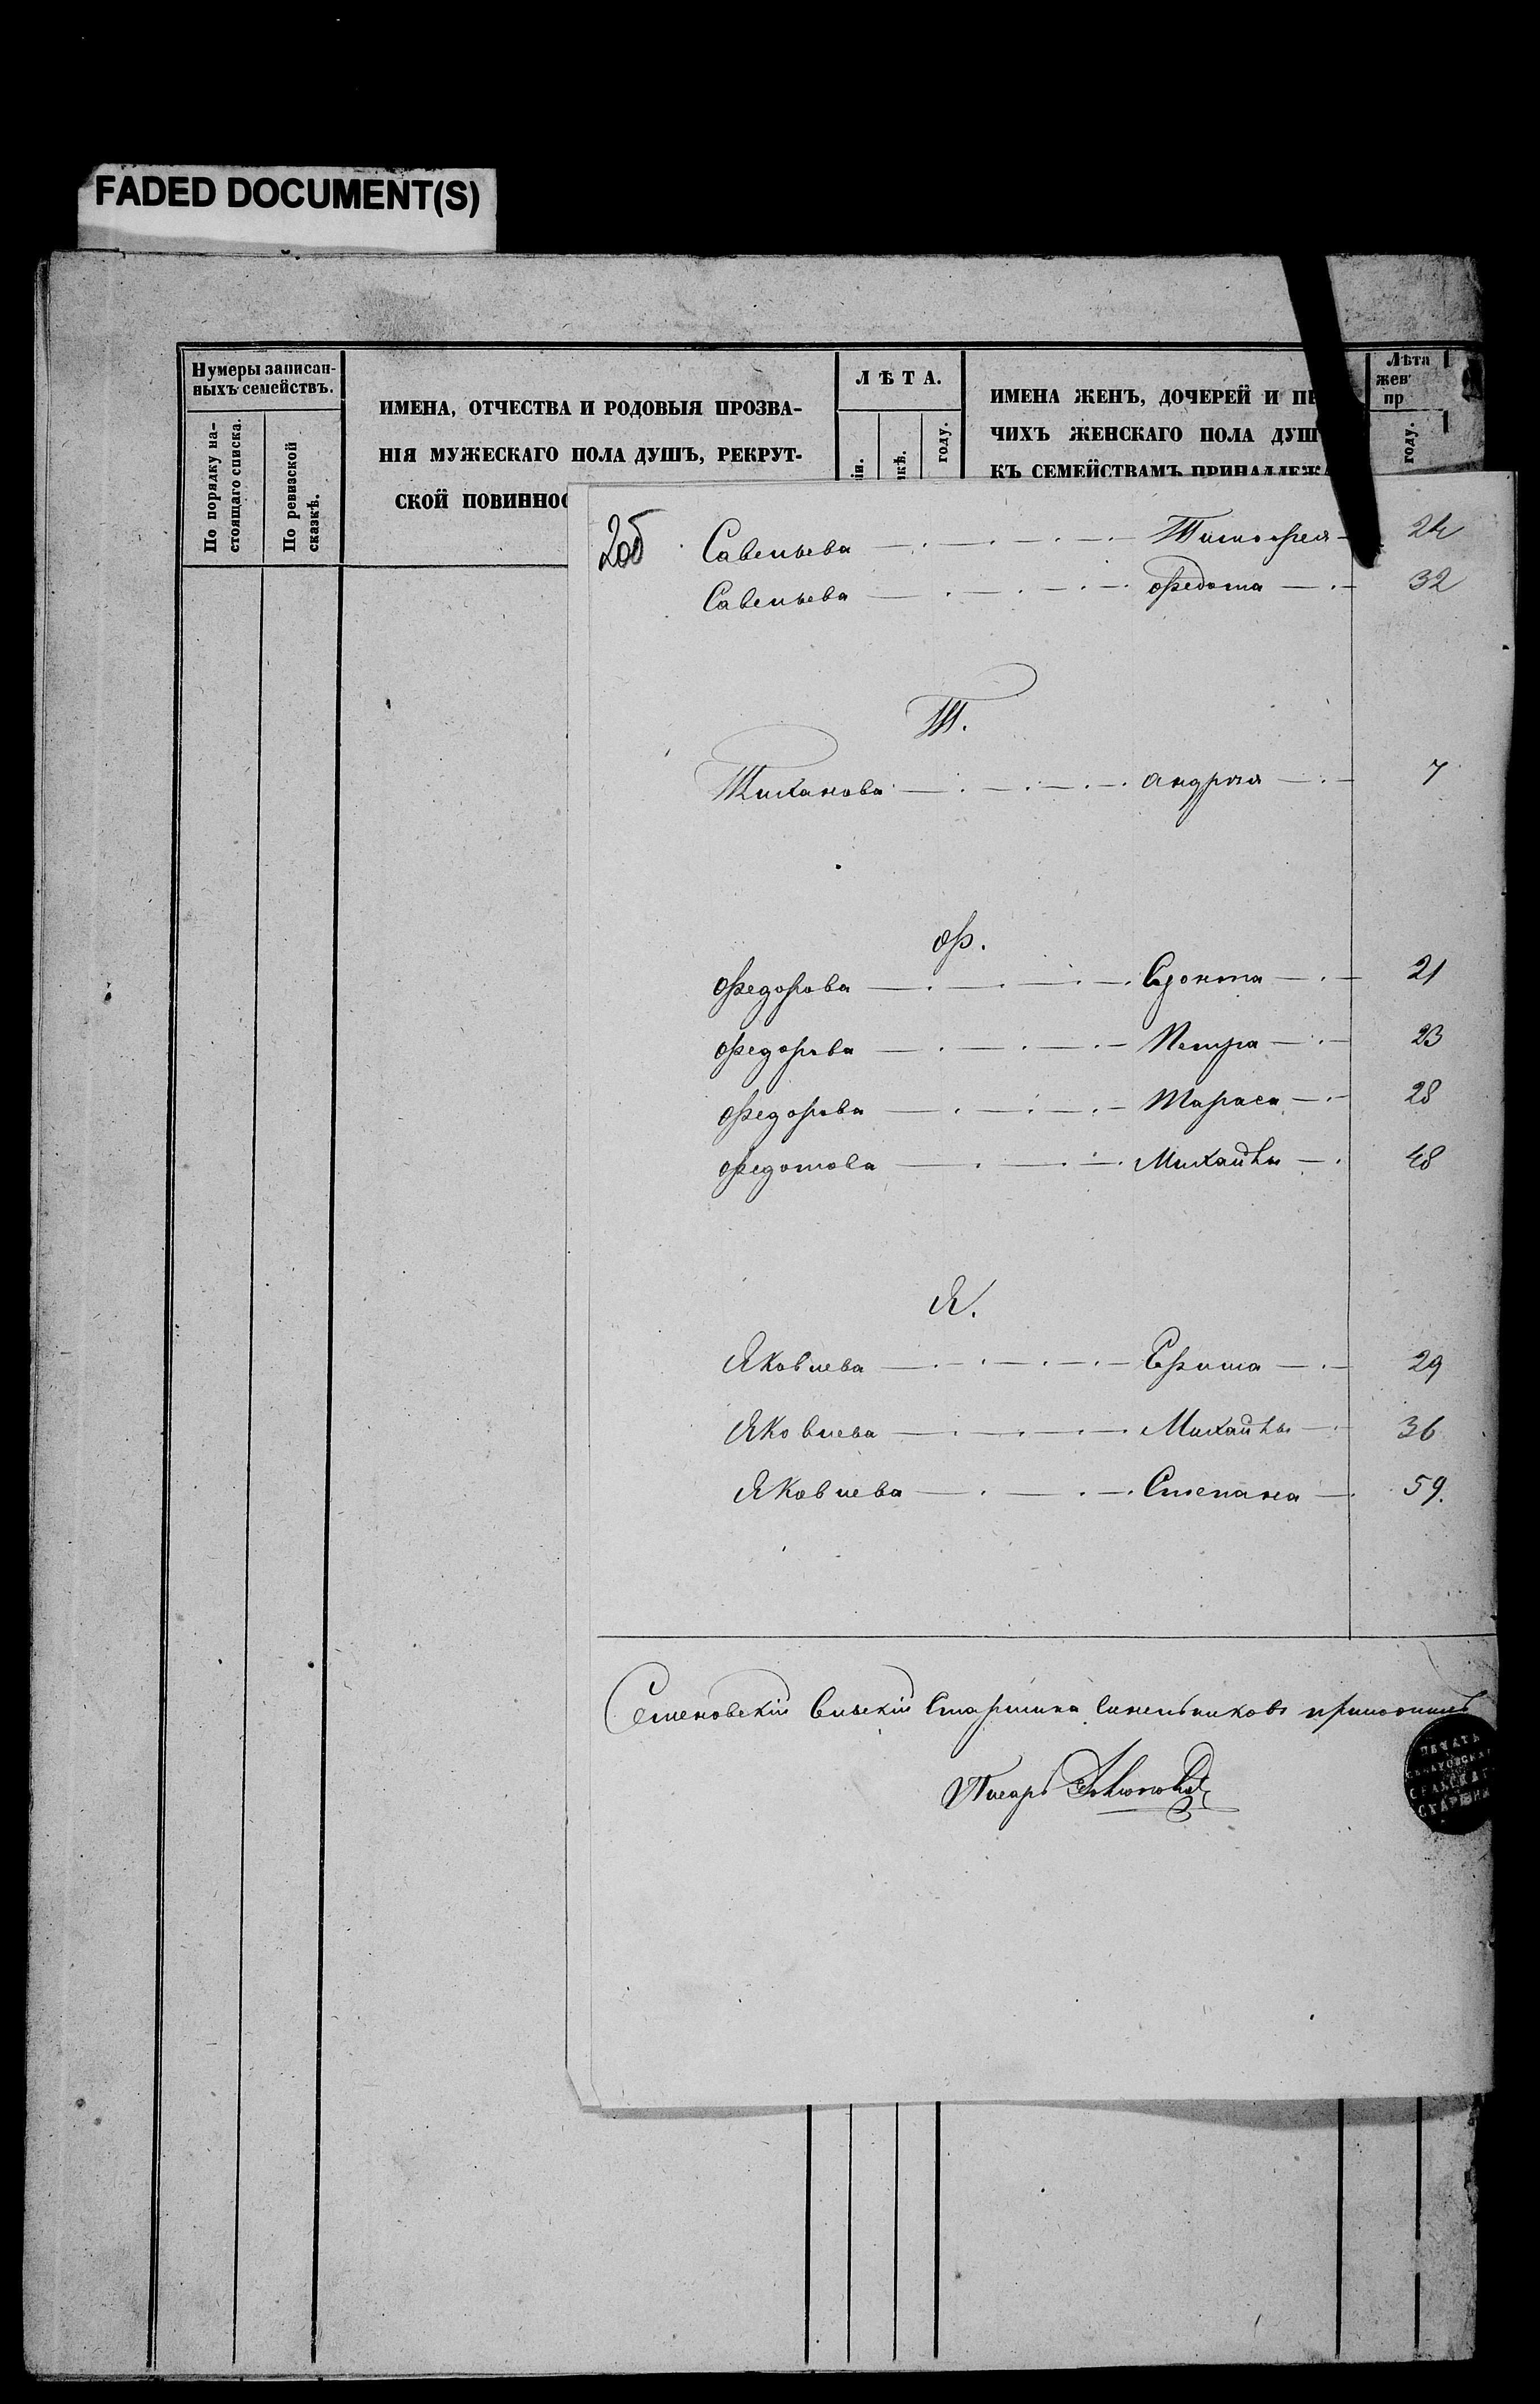 FADED DOCUMENT(S)
Нумеры записан-
ныхъ семействъ.
По порядку на-
стоящаго списка.
По ревизской
сказкѣ.
ИМЕНА, ОТЧЕСТВА И РОДОВЫЯ ПРОЗВА-
НІЯ МУЖЕСКАГО ПОЛА ДУШЪ, РЕКРУТ-
СКОЙ ПОВИННОС
ЛѢТА.
іи.
кѣ.
году.
ИМЕНА ЖЕНЪ, ДОЧЕРЕЙ И ПР
ЧИХЪ ЖЕНСКАГО ПОЛА ДУШ
КЪ СЕМЕЙСТВАМЪ ПРИНАДЛЕЖА
Лѣта
жен
пр
году.
Савельева Тимофея 24
Савельева Федота 32
Т.
Тиханова Андрея 7
Ф.
Федорова 21
Федорова Петра 23
Федорова Тараса 28
Федотова Михайлы 48
Я.
Яковлева Ефима 29
Яковлева Михайлы 36
Яковлева Степана 59.
Сельскій Старшина Синельниковъ
Писарь
ПЕЧАТЬ
СЕЛЬСКАГ
СТАРШИН